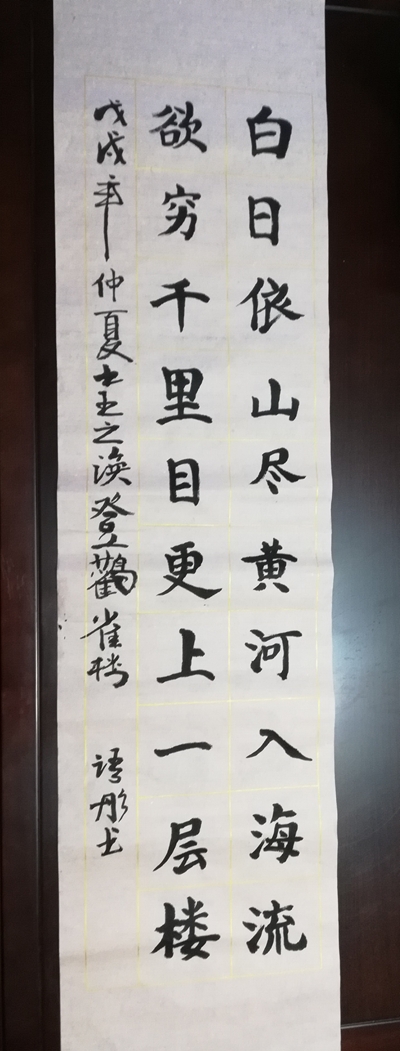 白日依山尽黄河入海流
欲穷千里目更上一层楼
戊戌年仲夏书王之涣登鹳雀楼 彤书